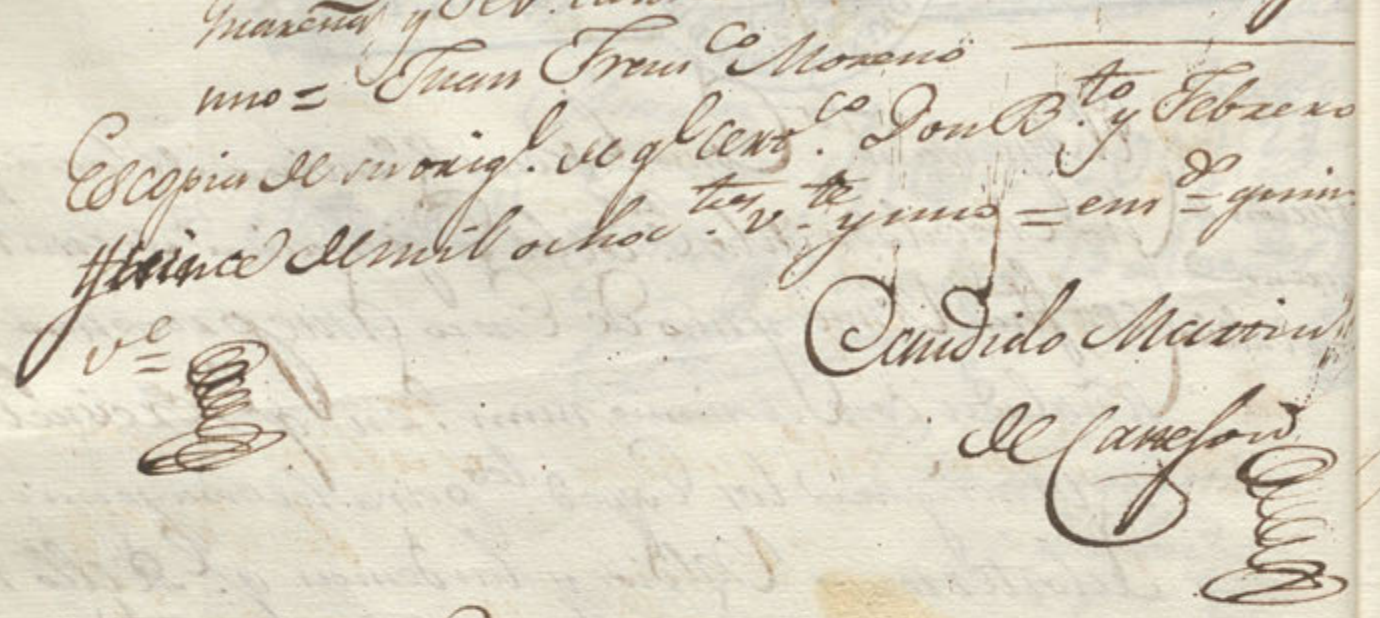 uno = Juan Franco Moreno
Es copia de su origl. de ql certco. Don Bto. y Febrero
quince de mil ochoctos. vte. y uno = emdo = quin
ve
Candido Martin
de Carreson